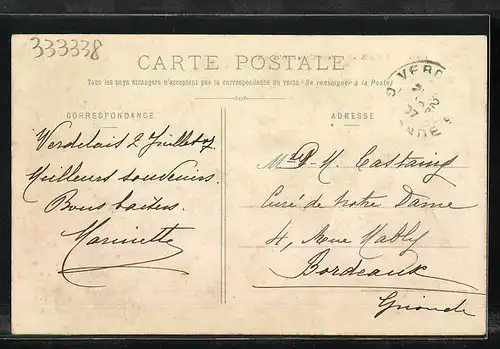 333338
CARTE POSTALE
Tous les pays étrangers n'acceptent pas la correspondance au recto (Se renseigner à la Poste)
CORRESPONDANCE
ADRESSE
Verdelais 2 Juillet 07
Meilleurs souvenirs.
Bons baisers.
Marinette
Castaing
Curé de Notre Dame
4, Rue Mably
Bordeaux
Gironde
VERD